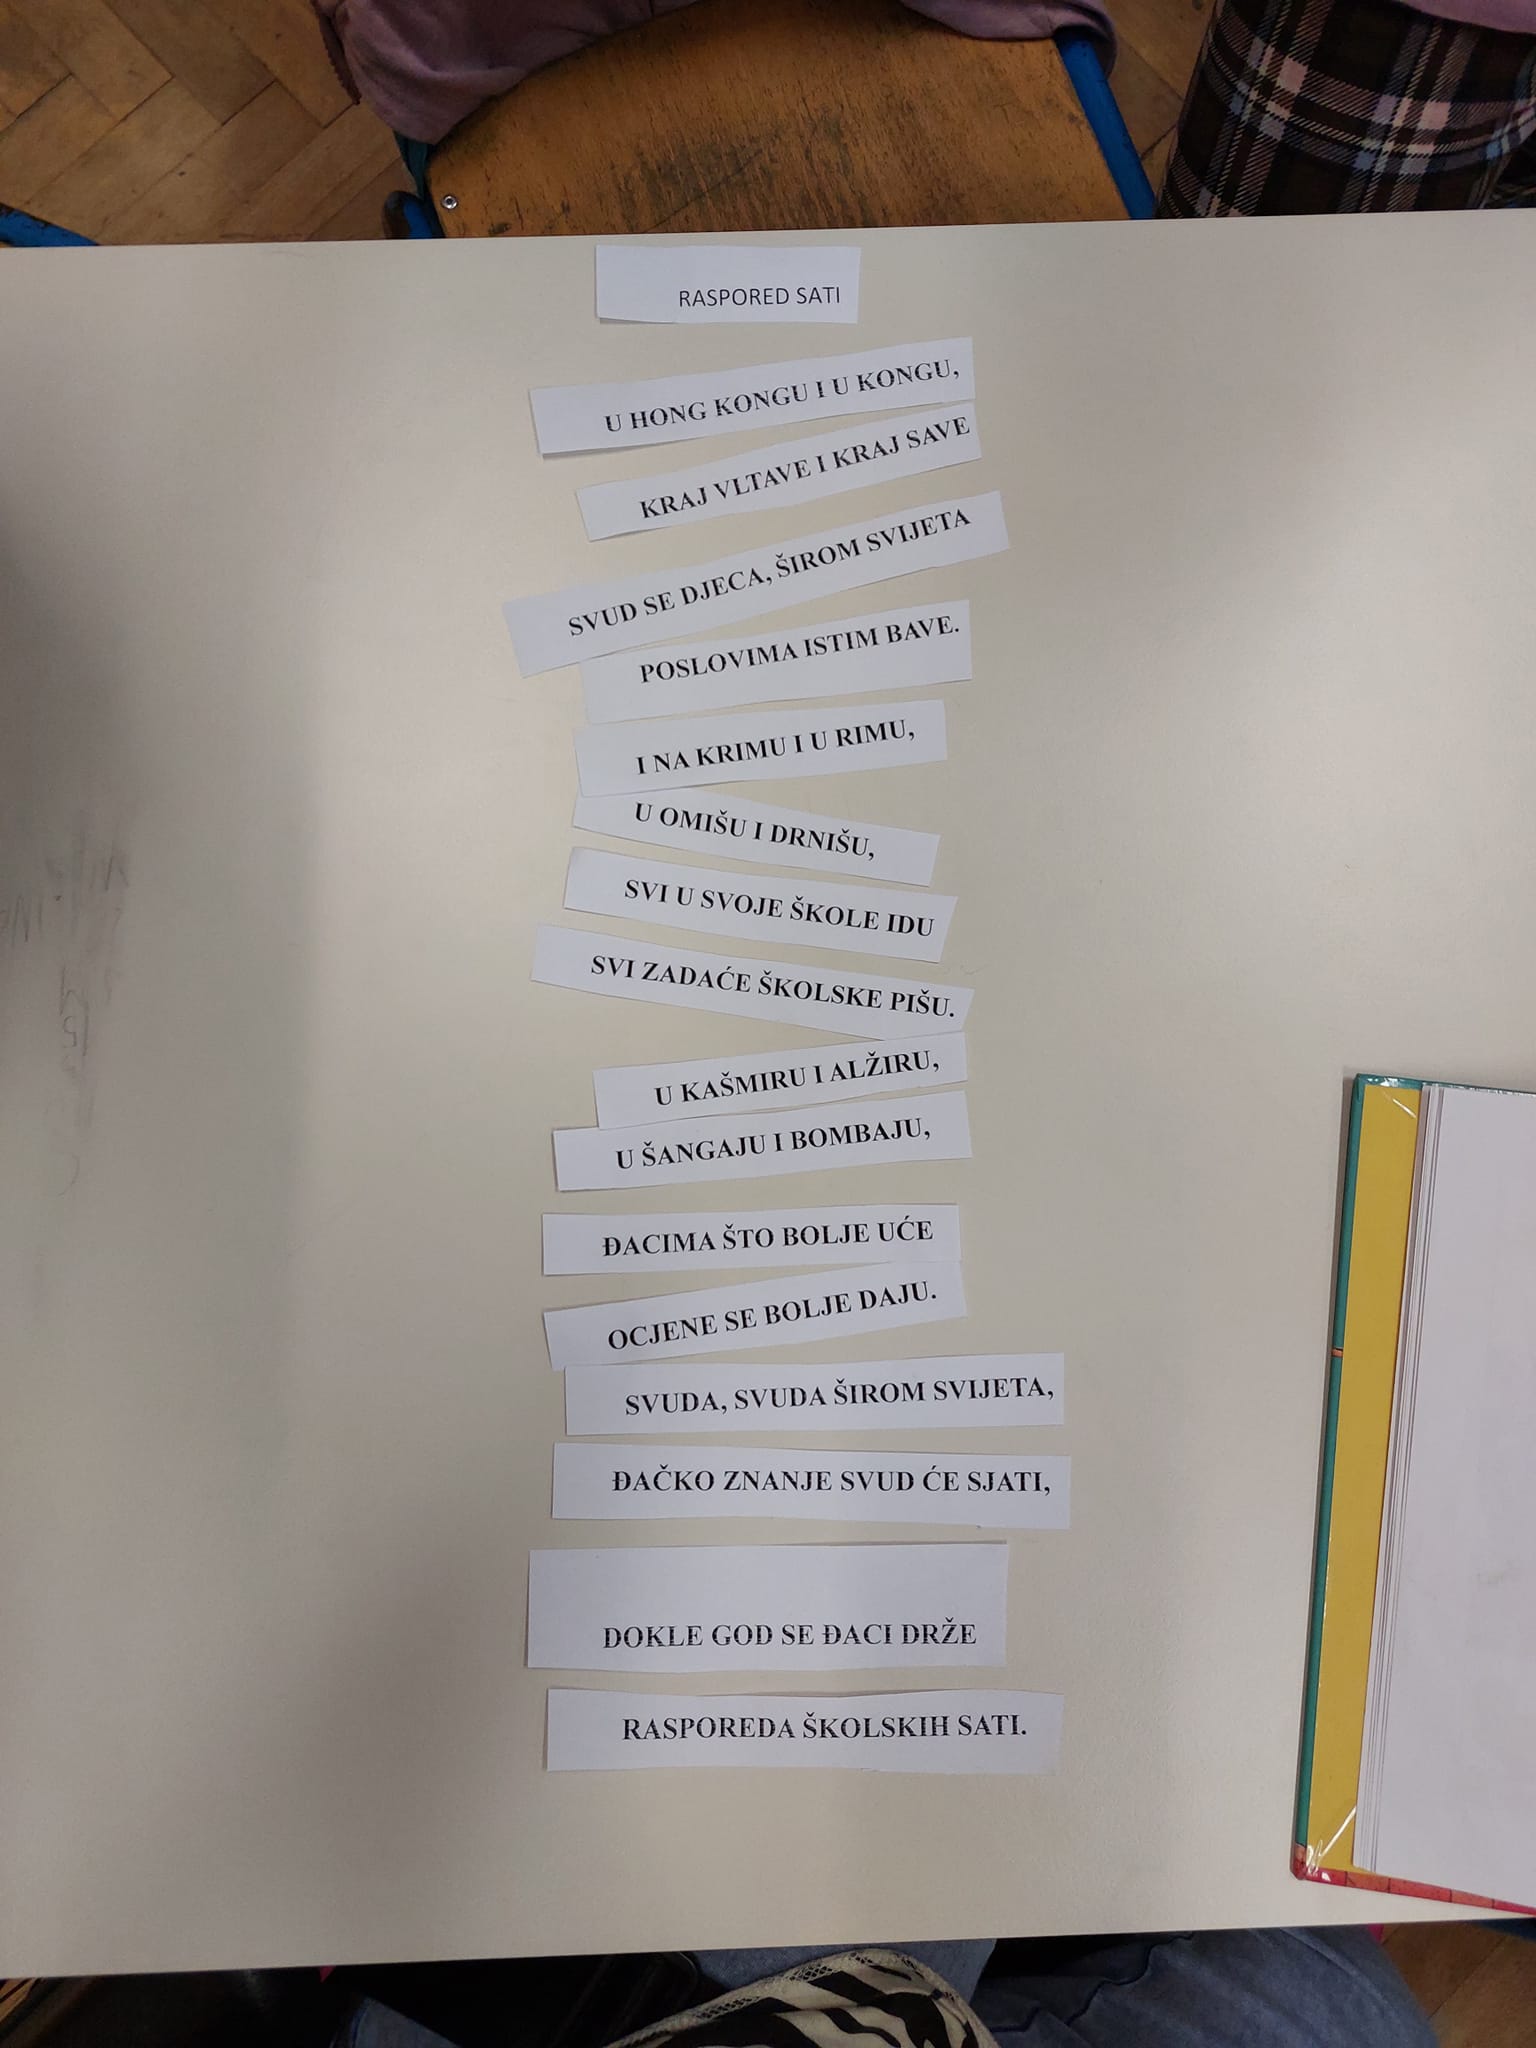 RASPORED SATI
U HONG KONGU I U KONGU,
KRAJ VLTAVE I KRAJ SAVE
SVUD SE DJECA, ŠIROM SVIJETA
POSLOVIMA ISTIM BAVE.
I NA KRIMU I U RIMU,
U OMIŠU I DRNIŠU,
SVI U SVOJE ŠKOLE IDU
SVI ZADAĆE ŠKOLSKE PIŠU.
U KAŠMIRU I ALŽIRU,
U ŠANGAJU I BOMBAJU,
ĐACIMA ŠTO BOLJE UĆE
OCJENE SE BOLJE DAJU.
SVUDA, SVUDA ŠIROM SVIJETA,
ĐAČKO ZNANJE SVUD ĆE SJATI,
DOKLE GOD SE ĐACI DRŽE
RASPOREDA ŠKOLSKIH SATI.